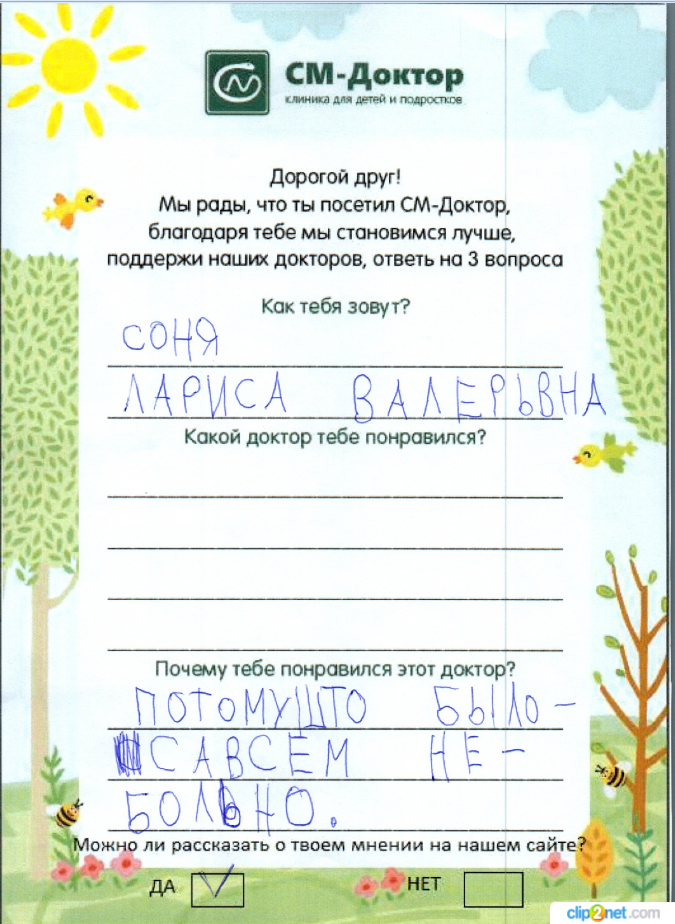 СМ-Доктор
клиника для детей и подростков
Дорогой друг!
Мы рады, что ты посетил СМ-Доктор,
благодаря тебе мы становимся лучше,
поддержи наших докторов, ответь на 3 вопроса
Как тебя зовут?
СОНЯ
ЛАРИСА ВАЛЕРЬВНА
Какой доктор тебе понравился?
Почему тебе понравился этот доктор?
ПОТОМУШТО БЫЛО-
САВСЕМ НЕ-
БОЛЬНО.
Можно ли рассказать о твоем мнении на нашем сайте?
ДА НЕТ
clip2net.com